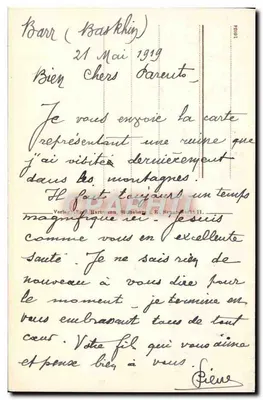 Barr (Bas Rhin)
21 Mai 1919
Bien Chers Parents.
Je vous envoie la carte
représentant une ruine que
j'ai visitée dernièrement
dans les montagnes.
Il fait toujours un temps
magnifique ici. Je suis
comme vous en excellente
santé. Je ne sais rien de
nouveau à vous dire pour
le moment. je termine en
vous embrassant tous de tout
cœur. Votre fils qui vous aime
et pense bien à vous.
Pierre